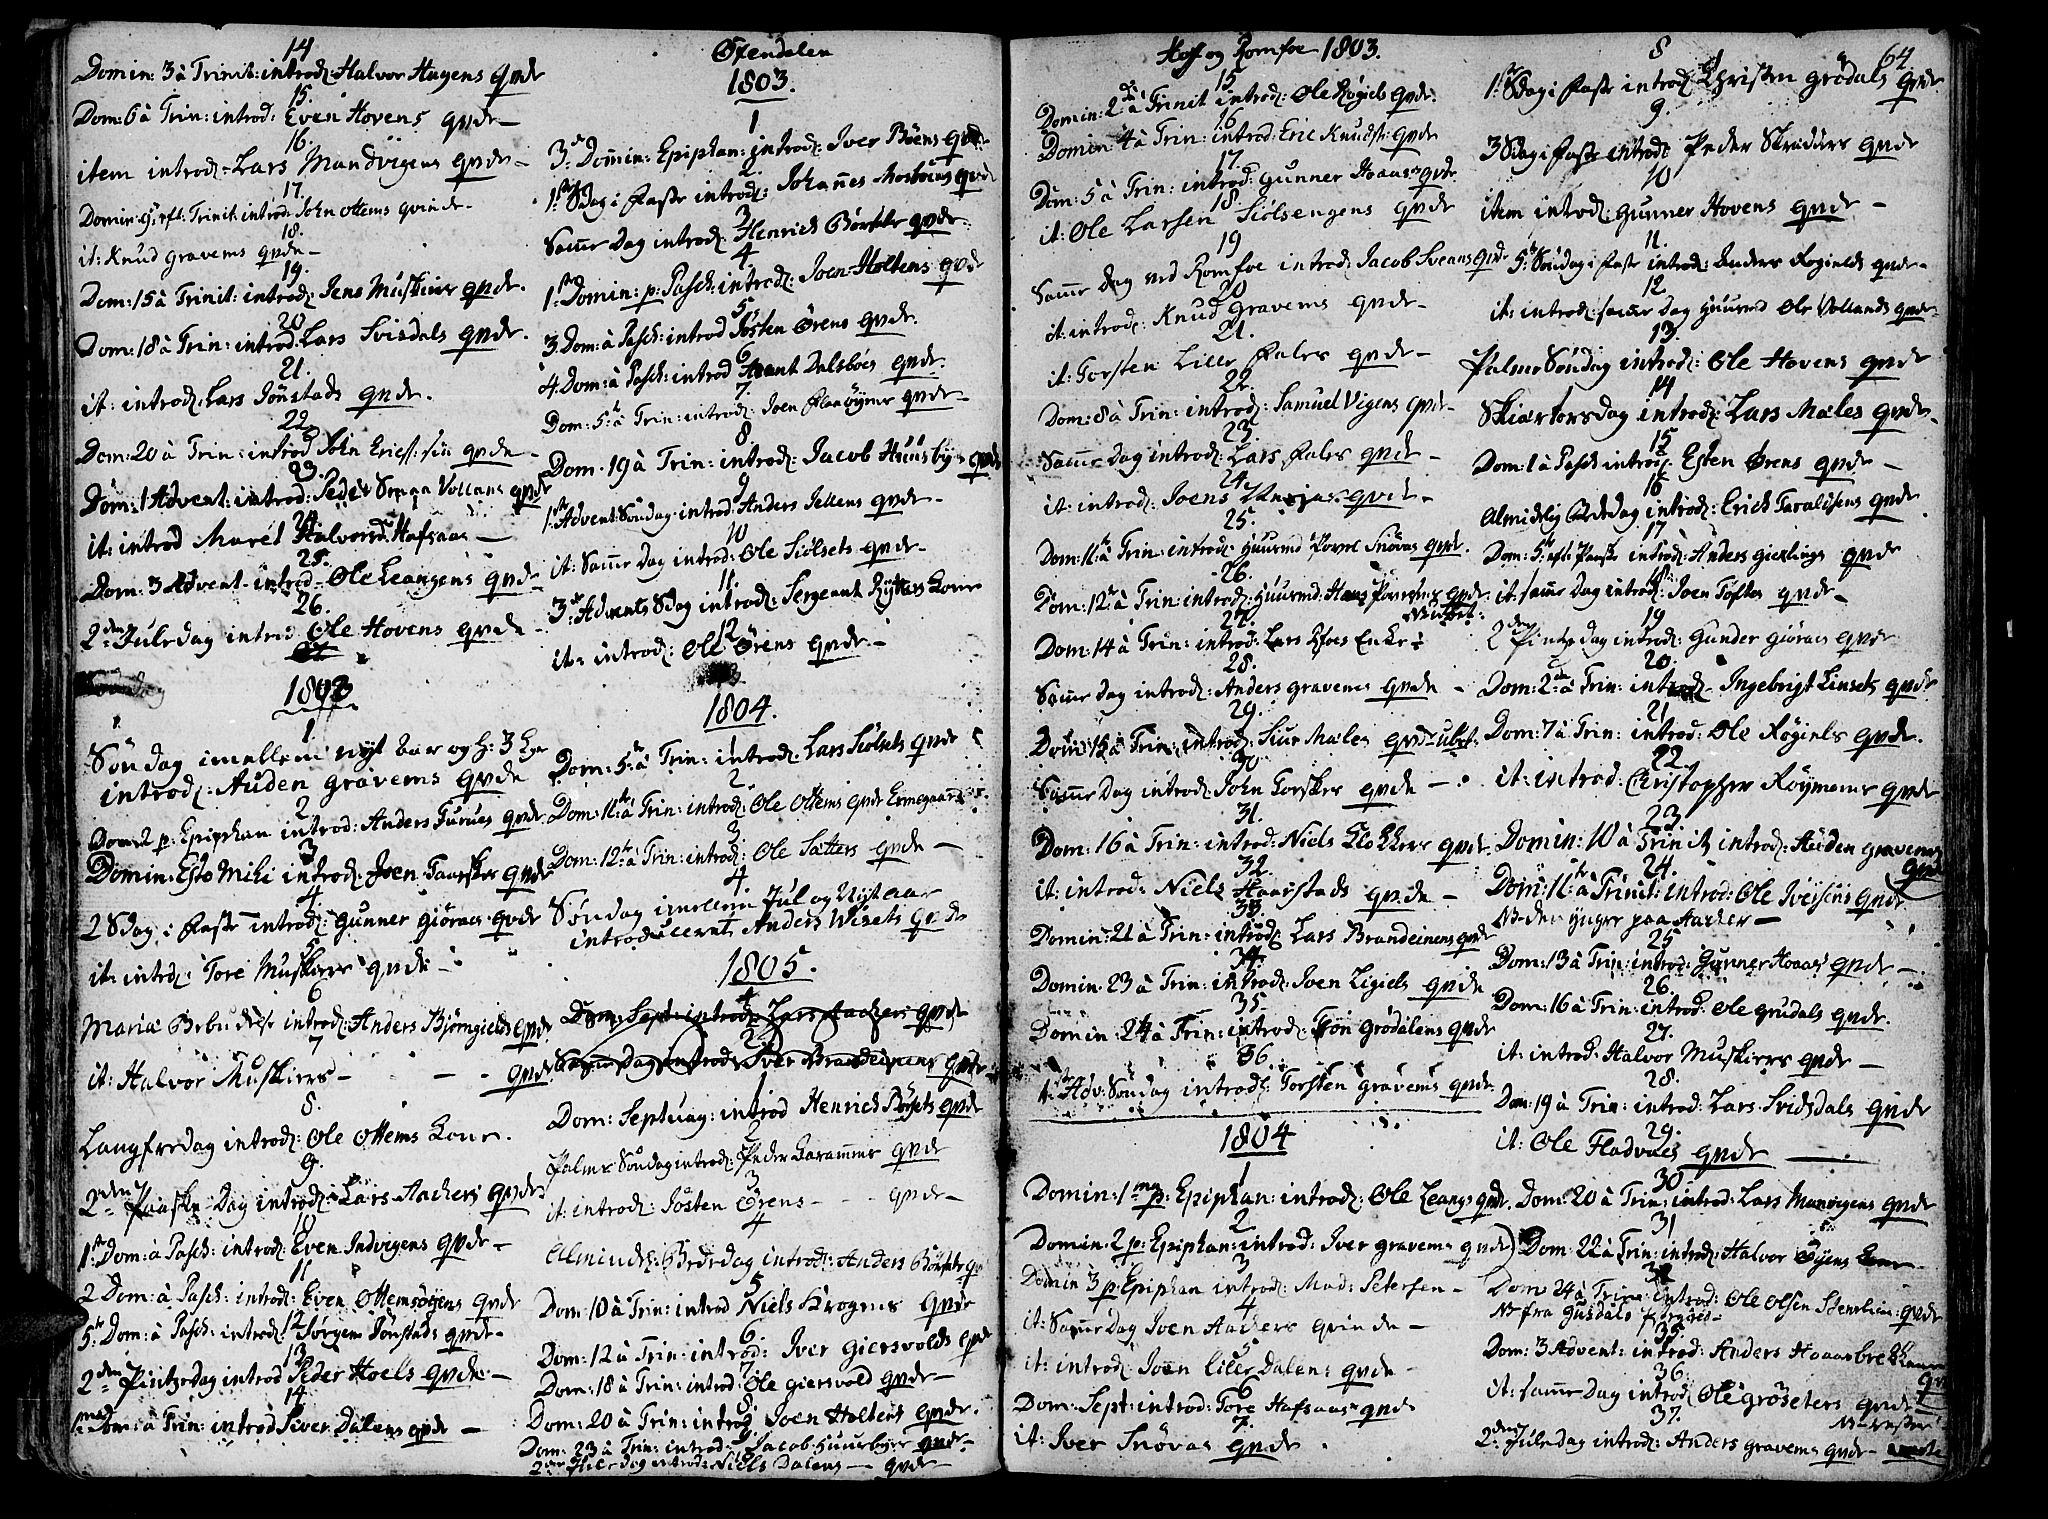 14
Domin: 3 à Trinit: introd: Halvor Hagens qvde
15.
Dom: 6 à Trin: introd: Even Hovens qvde —
16.
item introd: Lars Mandvigens qvde —
17.
Domin: 9 eft. Trinit: introd: John Ottems qvinde —
18.
it: Knud Gravems qvde —
19.
Dom: 15 à Trinit: introd: Jens Muskiers qvde.
20
Dom: 18 à Trin: introd: Lars Svisdals qvde.
21.
it: introd: Lars Jönstads qvde.
22.
Dom: 20 à Trin: introd John Erichs: qvde —
23.
Dom: 1 Advent: introd: Peder Vollans qvde
24
it: introd Maret Halvorsd: Hafsaas —
25.
Dom: 3 Advent introd: Ole Leangens qvde —
26.
2den Juledag introd Ole Hovens qvde —
1803
1
Söndag imellem nyt Aar og H: 3 Kgr
introd: Auden Gravems qvde
2
Dom: 2 p: Epiphan introd: Anders Furues qvde
3
Domin: Esto Mihi introd: Joen Taarsker qvde
4
2 Sdag i Faste introd: Gunner Giöraas qvde
5
it: introd: Tore Muskiers qvde —
6
Mariæ Bebudelse introd: Anders Björngields qvde
7
it: Halvor Muskiers — — — qvde
8.
Langfredag introd: Ole Ottems Kone.
9.
2den Paaske Dag introd: Lars Aachers qvde
10
1ste Dom: à Pasch: introd: Even Indvegens qvde —
11
2 Dom: à Pasch: introd: Even Ottemsöyens qvde
12
5te Dom: à Pasch: introd: Jörgen Jönstads qvde —
13
2den Pintzedag introd Peder Hoels qvde —
14
1ma Dom: à Trin: introd Siver Dalens qvde —
Öxendalen
1803.
1
3de Domin: Epiphan: introd: Iver Böens qvde
2.
1ste Sdag i Faste introd: Johannes Mosboens qvde
3
Samme Dag introd: Henrich Börsets qvde.
4
1ste Domin: p: Pasch: introd: Joen Holtens qvde
5
3. Dom: à Pasch: introd Josten Örens qvde.
6
4. Dom: à Pasch: introd Dalsboes qvde.
7.
Dom: 5te à Trin: introd: Joen Flaöyens qvde —
8
Dom: 19 à Trin: introd: Jacob Huusbyes qvde
9
1ste Advent: Söndag introd: Anders Jellens qvde —
10
it: Samme Dag introd: Ole Siölsets qvde —
11.
3de Advents Sdag introd: Sergeant Ryttes Kone
12
it: introd: Ole Örens qvde —
1804.
1
Dom: 5te à Trin: introd: Lars Siölsets qvde
2
Dom: 11te à Trin: introd: Ole Ottems qvde
3
Dom: 12te à Trin: introd: Ole Sætters qvde —
4.
Söndag imellem Jul og Nyt Aar
introduceret Anders Wisets qvde
1805.
1
Dom: Sept: introd: Lars Aachers qvde
2
Samme Dag introd: Iver Brandeinens qvde
1
Dom: Septuag: introd Henrich Börsets qvde
2
Palme Söndag introd: Peder Garammer qvde
3
it: introd: Josten Örens — — qvde —
4
Almindel: Bededag introd: Anders Börsets qv
5
Dom: 10 à Trin: introd Niels Krogens qvde
6
Dom: 12 à Trin: introd: Iver Giersvolds qvde
7
Dom: 18 à Trin: introd: Ole Giersvold qvde —
8.
Dom: 20 à Trin: introd Joen Holtens qvde.
9
Dom: 23 à Trin: introd: Jacob Huusbyes qvde —
2den Juledag introd: Niels Dalens — qvde —
Hof og Romfoe 1803.
15
Domin: 2de à Trinit introd: Ole Röyiels qvde.
16
Domin 4 à Trin: introd: Eric Knuds: qvde
17
Dom: 5 à Trin: introd: Gunner Hoaas qvde
18.
it: Ole Larsen Siölsengens qvde
19
Samme Dag ved Romfoe introd: Jacob Sveans qvde
20
it: introd: Knud Gravems qvde —
21.
it: Torsten Lille Fales qvde —
22.
Dom: 8 à Trin: introd: Samuel Vigens qvde
23.
Samme Dag introd: Lars Fales qvde —
24
it: introd: Joens qvde —
25.
Dom: 11te à Trin: introd: Huusmd Povel Snövas qvde.
26.
Dom: 12te à Trin: introd: Huusmd: Hans Povelsens qvde
27.
Dom: 14 à Trin: introd: Lars Enke
28.
Samme Dag introd: Anders Gravems qvde —
29.
Dom: 15 à Trin: introd: Siur Mæles qvde
30
Samme Dag introd: John Torsker qvde —
31.
Dom: 16 à Trin: introd: Niels Klokkers qvde
32.
it: introd: Niels Haarstads qvde —
33.
Domin: 21 à Trin: introd: Lars Brandeinens qvde
34.
Domin: 23 à Trin: introd: Joen Ligiels qvde
35
Domin: 24 à Trin: introd: Jon Grödalens qvde
36.
1ste Adv: Söndag introd: Torsten Gravems qvde.
1804
1
Domin: 1ma p: Epiphan: introd: Ole Leangs qvde.
2.
Domin: 2 p: Epiphan: introd: Iver Gravems qvde
3
Domin 3 p: Epiphan introd: Mad: Petersen —
4
it: Samme Dag Joen Aachers qvinde —
5
it: introd: Joen Lille Dalens qvde —
6
Dom: Sept: introd: Tore Hafsaas qvde
7.
it: Iver Snövas qvde.
64
8
1ste Sdag i Faste introd: Christen Grödals qvde
9.
3 Sdag i Faste introd: Peder Skræders qvde
10
item introd: Gunner Hovens qvde —
11.
5te Söndag i Faste introd: Anders Röyields qvde —
12
it: introd: samme Dag Huusmd Ole Vollands qvde
13.
Palme Söndag introd: Ole Hovens qvde
14
Skiærtorsdag introd: Lars Mæles qvde —
15
Dom: 1 à Pasch introd: Esten Örens qvde —
16
Almindelig Bededag introd: Erich Taraldsens qvde
17
Dom: 5te eft: Paaske introd: Anders Gierlings qvde
18
it: samme Dag introd: Joen Toftes qvde —
19
2den Pintzedag introd: Gunder Giöraas qvde
20.
Dom: 2de à Trin: introd: Ingebrigt Linsets qvde
21
Dom: 7 à Trin: introd: Ole Röyiels qvde.
22
it: introd: Christopher Röymoens qvde
23
Domin: 10 à Trinit introd: Auden Gravems
qvde
24.
Dom: 11te à Trinit: introd: Ole Iversens qvde
NB den yngre paa Aacker —
25
Dom: 13 à Trin: introd: Gunner Hoaas qvde —
26.
Dom: 16 à Trin: introd: Ole Grudals qvde.
27.
it: introd: Halvor Muskiers qvde —
28.
Dom: 19 à Trin: introd: Lars Svisdals qvde
29.
it: Ole Fladvaes qvde —
30
Dom: 20 à Trin: introd: Lars Manvigens qvde
31
Dom: 22 à Trin: introd: Halvor Öyens Kone
32
Dom 24 à Trin: introd: Ole Olsen qvde
NB fra Gusdals
35.
Dom: 3 Advent: introd: Anders Hoaasbrek
qvde
36.
it: samme Dag introd: Ole Gröseters qvde
37.
2den Juledag introd: Anders Gravems qvde —